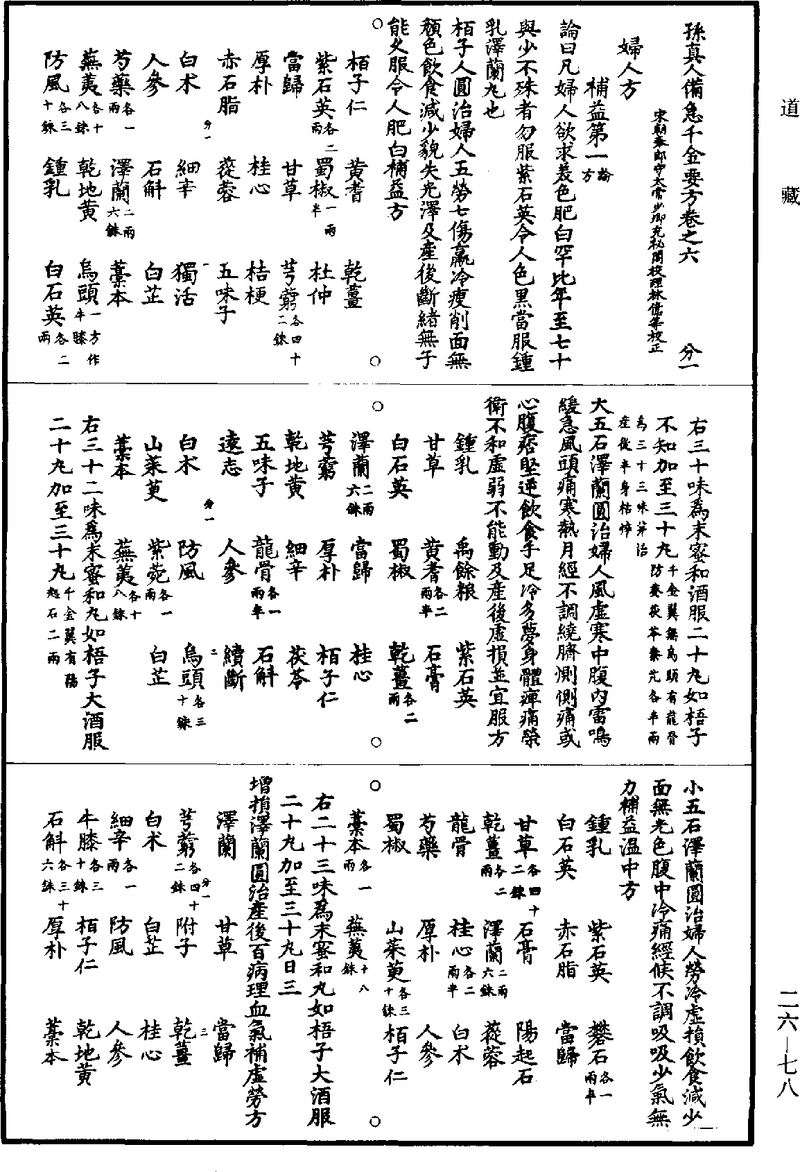 道藏
孫真人備急千金要方卷之六 分一
宋朝奉郎守太常少卿充秘閣校理林億等校正
婦人方
補益第一論方
論曰凡婦人欲求美色肥白罕比年至七十
與少不殊者勿服紫石英令人色黑當服鍾
乳澤蘭丸也
栢子人圓治婦人五勞七傷羸冷瘦削面無
顏色飲食減少貌失光澤及產後斷緒無子
能久服令人肥白補益方
栢子仁 黃耆 乾薑
紫石英各二兩 蜀椒一兩半 杜仲
當歸 甘草 芎藭各四十二銖
厚朴 桂心 桔梗
赤石脂 蓯蓉 五味子
白朮 細辛 獨活
人參 石斛 白芷
芍藥各一兩 澤蘭二兩六銖 藁本
蕪荑各十八銖 乾地黃 烏頭一方作牛膝
防風各三十銖 鍾乳 白石英各二兩
右三十味為末蜜和酒服二十丸如梧子
不知加至三十丸千金翼無烏頭有龍骨防葵茯苓秦艽各半兩
為三十三味并治產後半身枯悴
大五石澤蘭圓治婦人風虛寒中腹內雷鳴
緩急風頭痛寒熱月經不調繞臍惻惻痛或
心腹痞堅逆飲食手足冷多夢身體痺痛榮
衛不和虛弱不能動及產後虛損並宜服方
鍾乳 禹餘粮 紫石英
甘草 黃耆各二兩半 石膏
白石英 蜀椒 乾薑各二兩
澤蘭二兩六銖 當歸 桂心
芎藭 厚朴 栢子仁
乾地黃 細辛 茯苓
五味子 龍骨各一兩半 石斛
遠志 人參 續斷
白朮 防風 烏頭各三十銖
山茱萸 紫菀各一兩 白芷
藁本 蕪荑各十八銖
右三十二味為末蜜和丸如梧子大酒服
二十丸加至三十丸千金翼有陽起石二兩
小五石澤蘭圓治婦人勞冷虛損飲食減少
面無光色腹中冷痛經候不調吸吸少氣無
力補益溫中方
鍾乳 紫石英 礬石各一兩半
白石英 赤石脂 當歸
甘草各四十二銖 石膏 陽起石
乾薑各二兩 澤蘭二兩六銖 蓯蓉
龍骨 桂心各二兩半 白朮
芍藥 厚朴 人參
蜀椒 山茱萸各三十銖 栢子仁
藁本各一兩 蕪荑十八銖
右二十三味為末蜜和丸如梧子大酒服
二十丸加至三十丸日三
增損澤蘭圓治產後百病理血氣補虛勞方
澤蘭 甘草 當歸
芎藭各四十二銖 附子 乾薑
白朮 白芷 桂心
細辛各一兩 防風 人參
牛膝各三十銖 栢子仁 乾地黃
石斛各三十六銖 厚朴 藁本
二六—七八